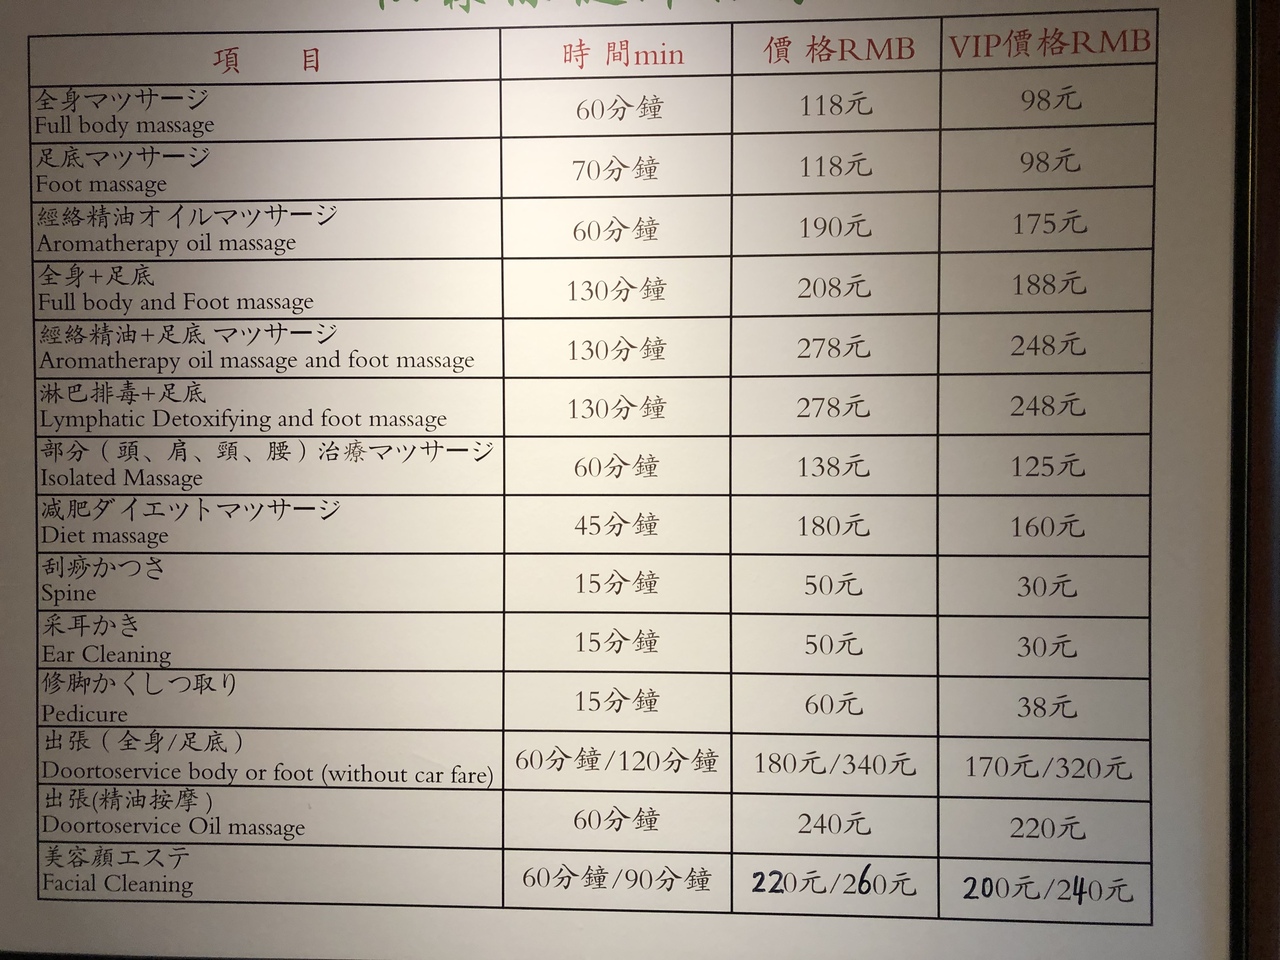 項 目 時 間min 價 格RMB VIP價格RMB
全身マッサージ
Full body massage
60分鐘 118元 98元
足底マッサージ
Foot massage
70分鐘 118元 98元
經絡精油オイルマッサージ
Aromatherapy oil massage
60分鐘 190元 175元
全身+足底
Full body and Foot massage
130分鐘 208元 188元
經絡精油+足底 マッサージ
Aromatherapy oil massage and foot massage
130分鐘 278元 248元
淋巴排毒+足底
Lymphatic Detoxifying and foot massage
130分鐘 278元 248元
部分（頭、肩、頸、腰）治療マッサージ
Isolated Massage
60分鐘 138元 125元
减肥ダイエットマッサージ
Diet massage
45分鐘 180元 160元
刮痧かつさ
Spine
15分鐘 50元 30元
采耳かき
Ear Cleaning
15分鐘 50元 30元
修脚かくしつ取り
Pedicure
15分鐘 60元 38元
出張（全身/足底）
Doortoservice body or foot (without car fare)
60分鐘/120分鐘 180元/340元 170元/320元
出張(精油按摩)
Doortoservice Oil massage
60分鐘 240元 220元
美容顔エステ
Facial Cleaning
60分鐘/90分鐘 220元/260元 200元/240元